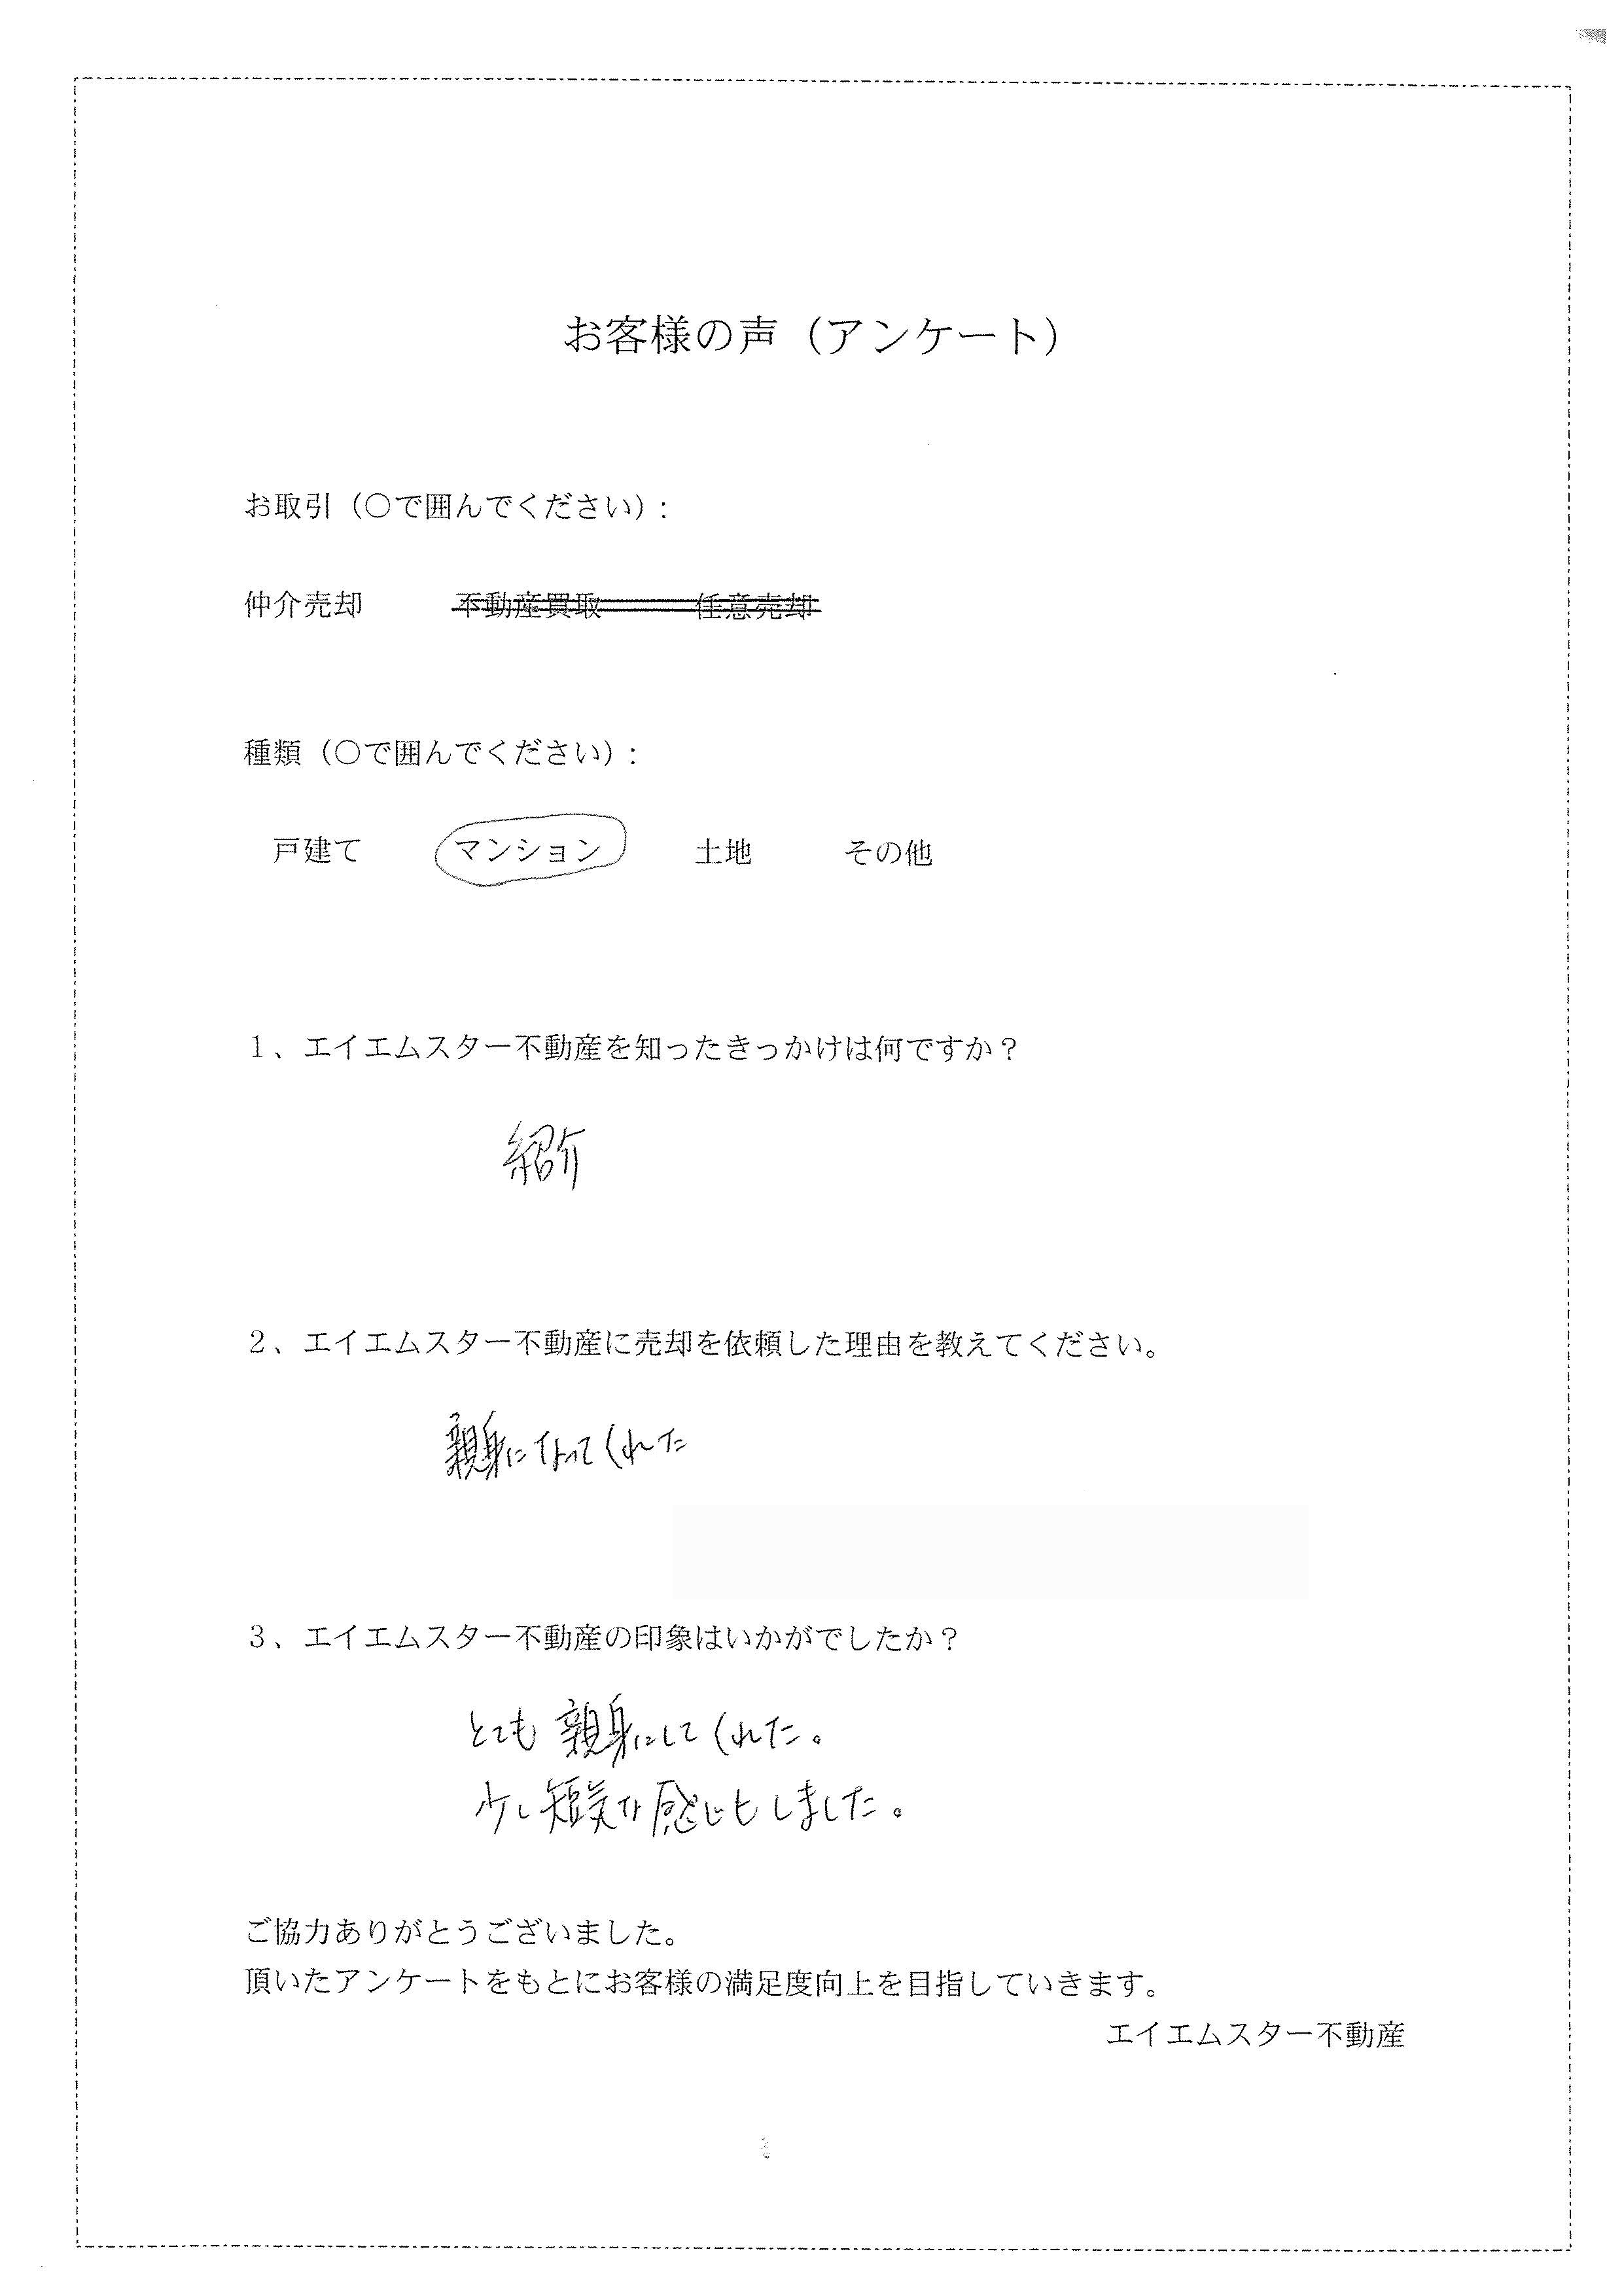 お客様の声（アンケート）
お取引（〇で囲んでください）：
仲介売却　不動産買取　任意売却
種類（〇で囲んでください）：
戸建て　マンション　土地　その他
１、エイエムスター不動産を知ったきっかけは何ですか？
紹介
２、エイエムスター不動産に売却を依頼した理由を教えてください。
親身になってくれた
３、エイエムスター不動産の印象はいかがでしたか？
とても親身にしてくれた。
少し短気な感じもしました。
ご協力ありがとうございました。
頂いたアンケートをもとにお客様の満足度向上を目指していきます。
エイエムスター不動産